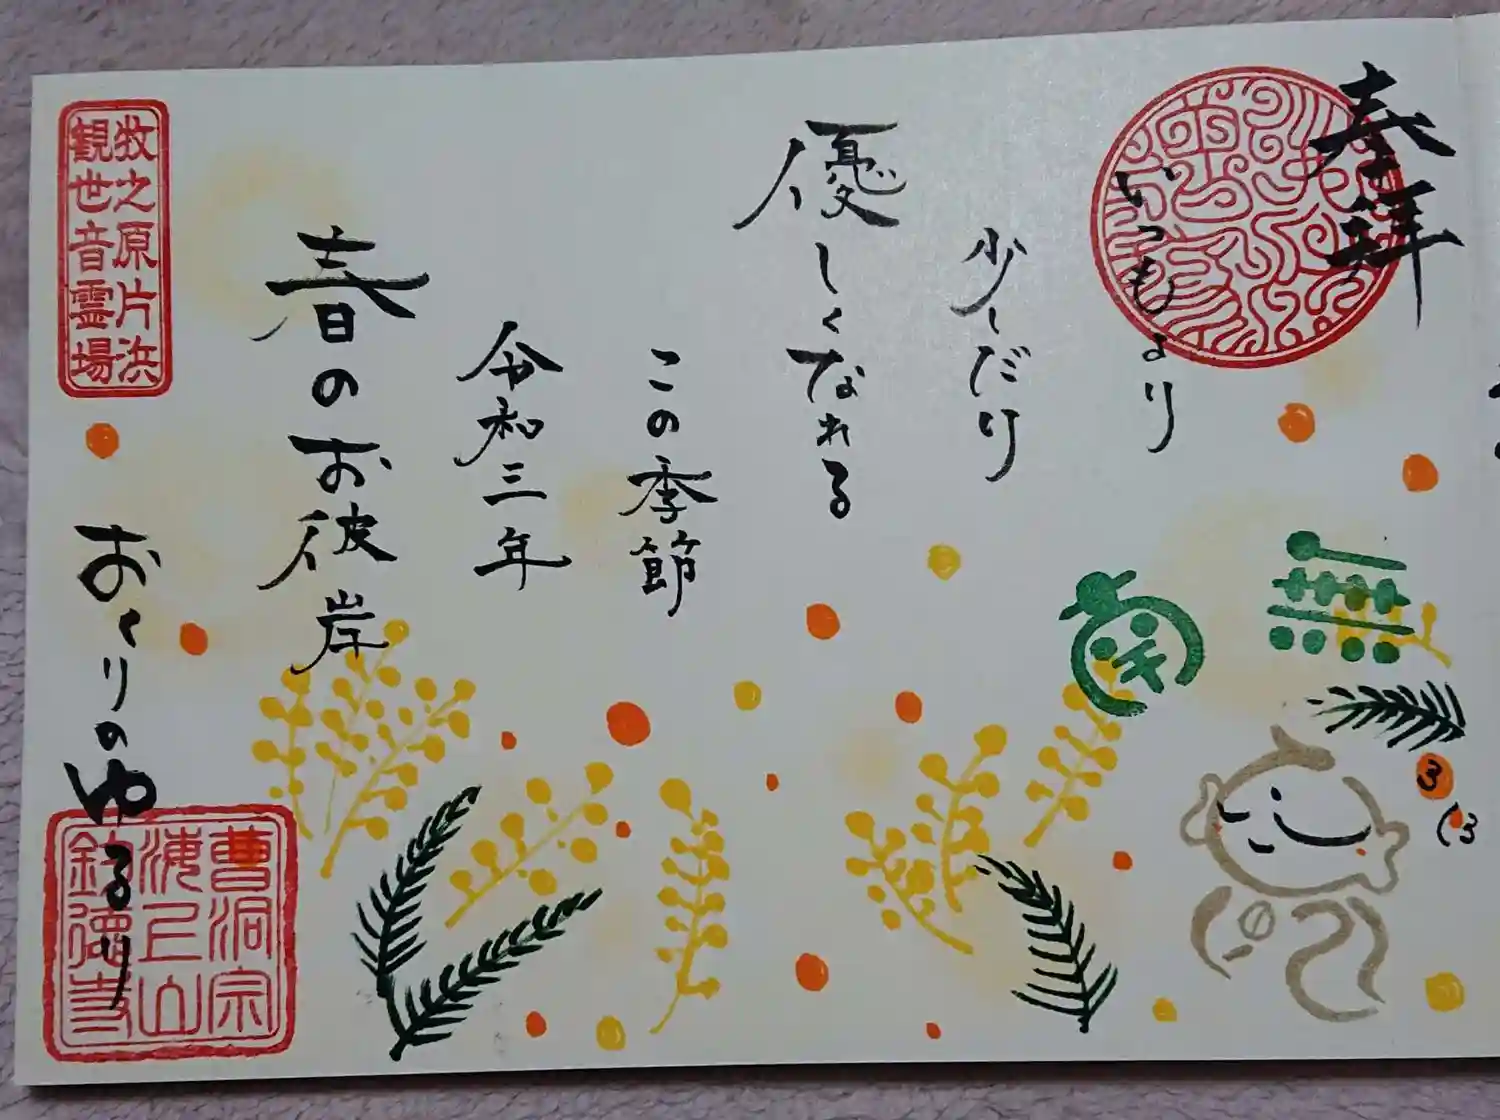 奉拝
いつもより
少しだけ
優しくなれる
この季節
令和三年
春のお彼岸
おくりのゆるり
牧之原片浜
観世音霊場
南無
曹洞宗
海上山
釣徳寺